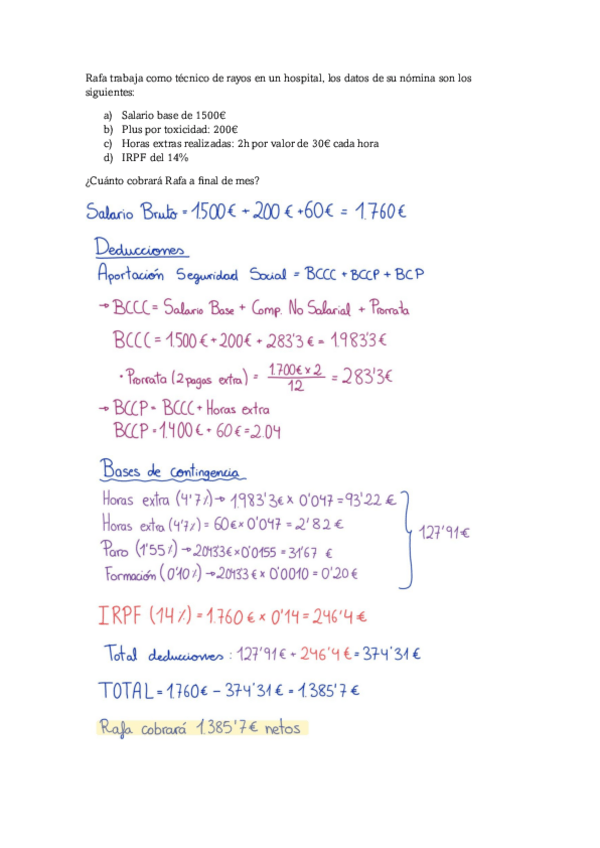 Rafa trabaja como técnico de rayos en un hospital, los datos de su nómina son los
siguientes:
a) Salario base de 1500€
b) Plus por toxicidad: 200€
c) Horas extras realizadas: 2h por valor de 30€ cada hora
d) IRPF del 14%
¿Cuánto cobrará Rafa a final de mes?
Salario Bruto = 1.500€ + 200€ + 60€ = 1.760€
Deducciones
Aportación Seguridad Social = BCCC + BCCP + BCP
→ BCCC = Salario Base + Comp. No Salarial + Prorrata
BCCC = 1.500€ + 200€ + 283'3€ = 1.983'3€
· Prorrata (2 pagas extra) = 1.700€ x 2 / 12 = 283'3€
→ BCCP = BCCC + Horas extra
BCCP = 1.400€ + 60€ = 2.04
Bases de contingencia
Horas extra (4'7%) → 1.983'3€ x 0'047 = 93'22€
Horas extra (4'7%) = 60€ x 0'047 = 2'82€
Paro (1'55%) → 2043'3€ x 0'0155 = 31'67€
Formación (0'10%) → 2043'3€ x 0'0010 = 0'20€
127'91€
IRPF (14%) = 1.760€ x 0'14 = 246'4€
Total deducciones: 127'91€ + 246'4€ = 374'31€
TOTAL = 1760€ - 374'31€ = 1.385'7€
Rafa cobrará 1.385'7€ netos